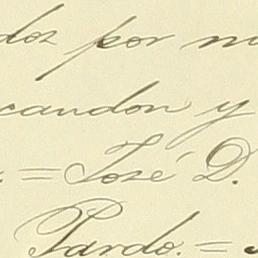 doz por m
candon y
= José D.
Pardo. =